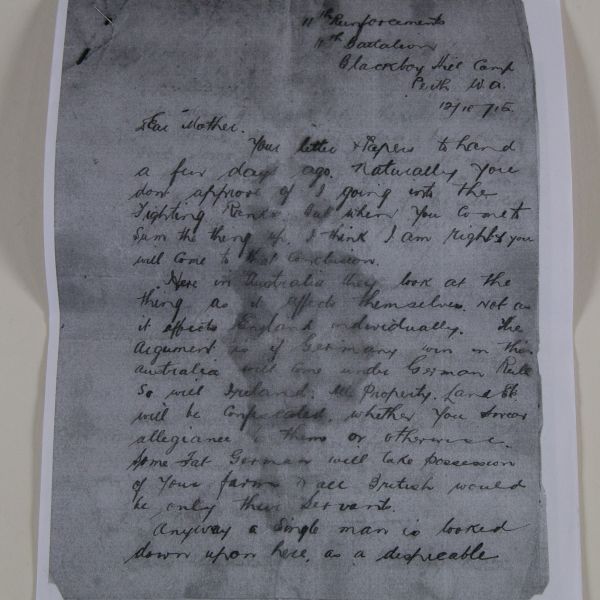 11th Reinforcements
11th Battalion
Blackboy Hill Camp
Perth W.A.
12/10/15.
Dear Mother.
Your letter & Papers to hand
a few days ago. Naturally you
dont approve of I going into the
Fighting Ranks. but when you come to
Sum the thing up, I think I am right & you
will come to that conclusion.
Here in Australia they look at the
thing as it affects themselves. not as
it affects England individually. The
argument is if Germany win in this
Australia will come under German Rule
So will Ireland. All Property. Land Etc
will be Confiscated. whether you swear
allegiance to them or otherwise.
Some Fat German will take possession
of your farm & all British would
be only their Servants.
Anyway a Single man is looked
down upon here. as a despicable